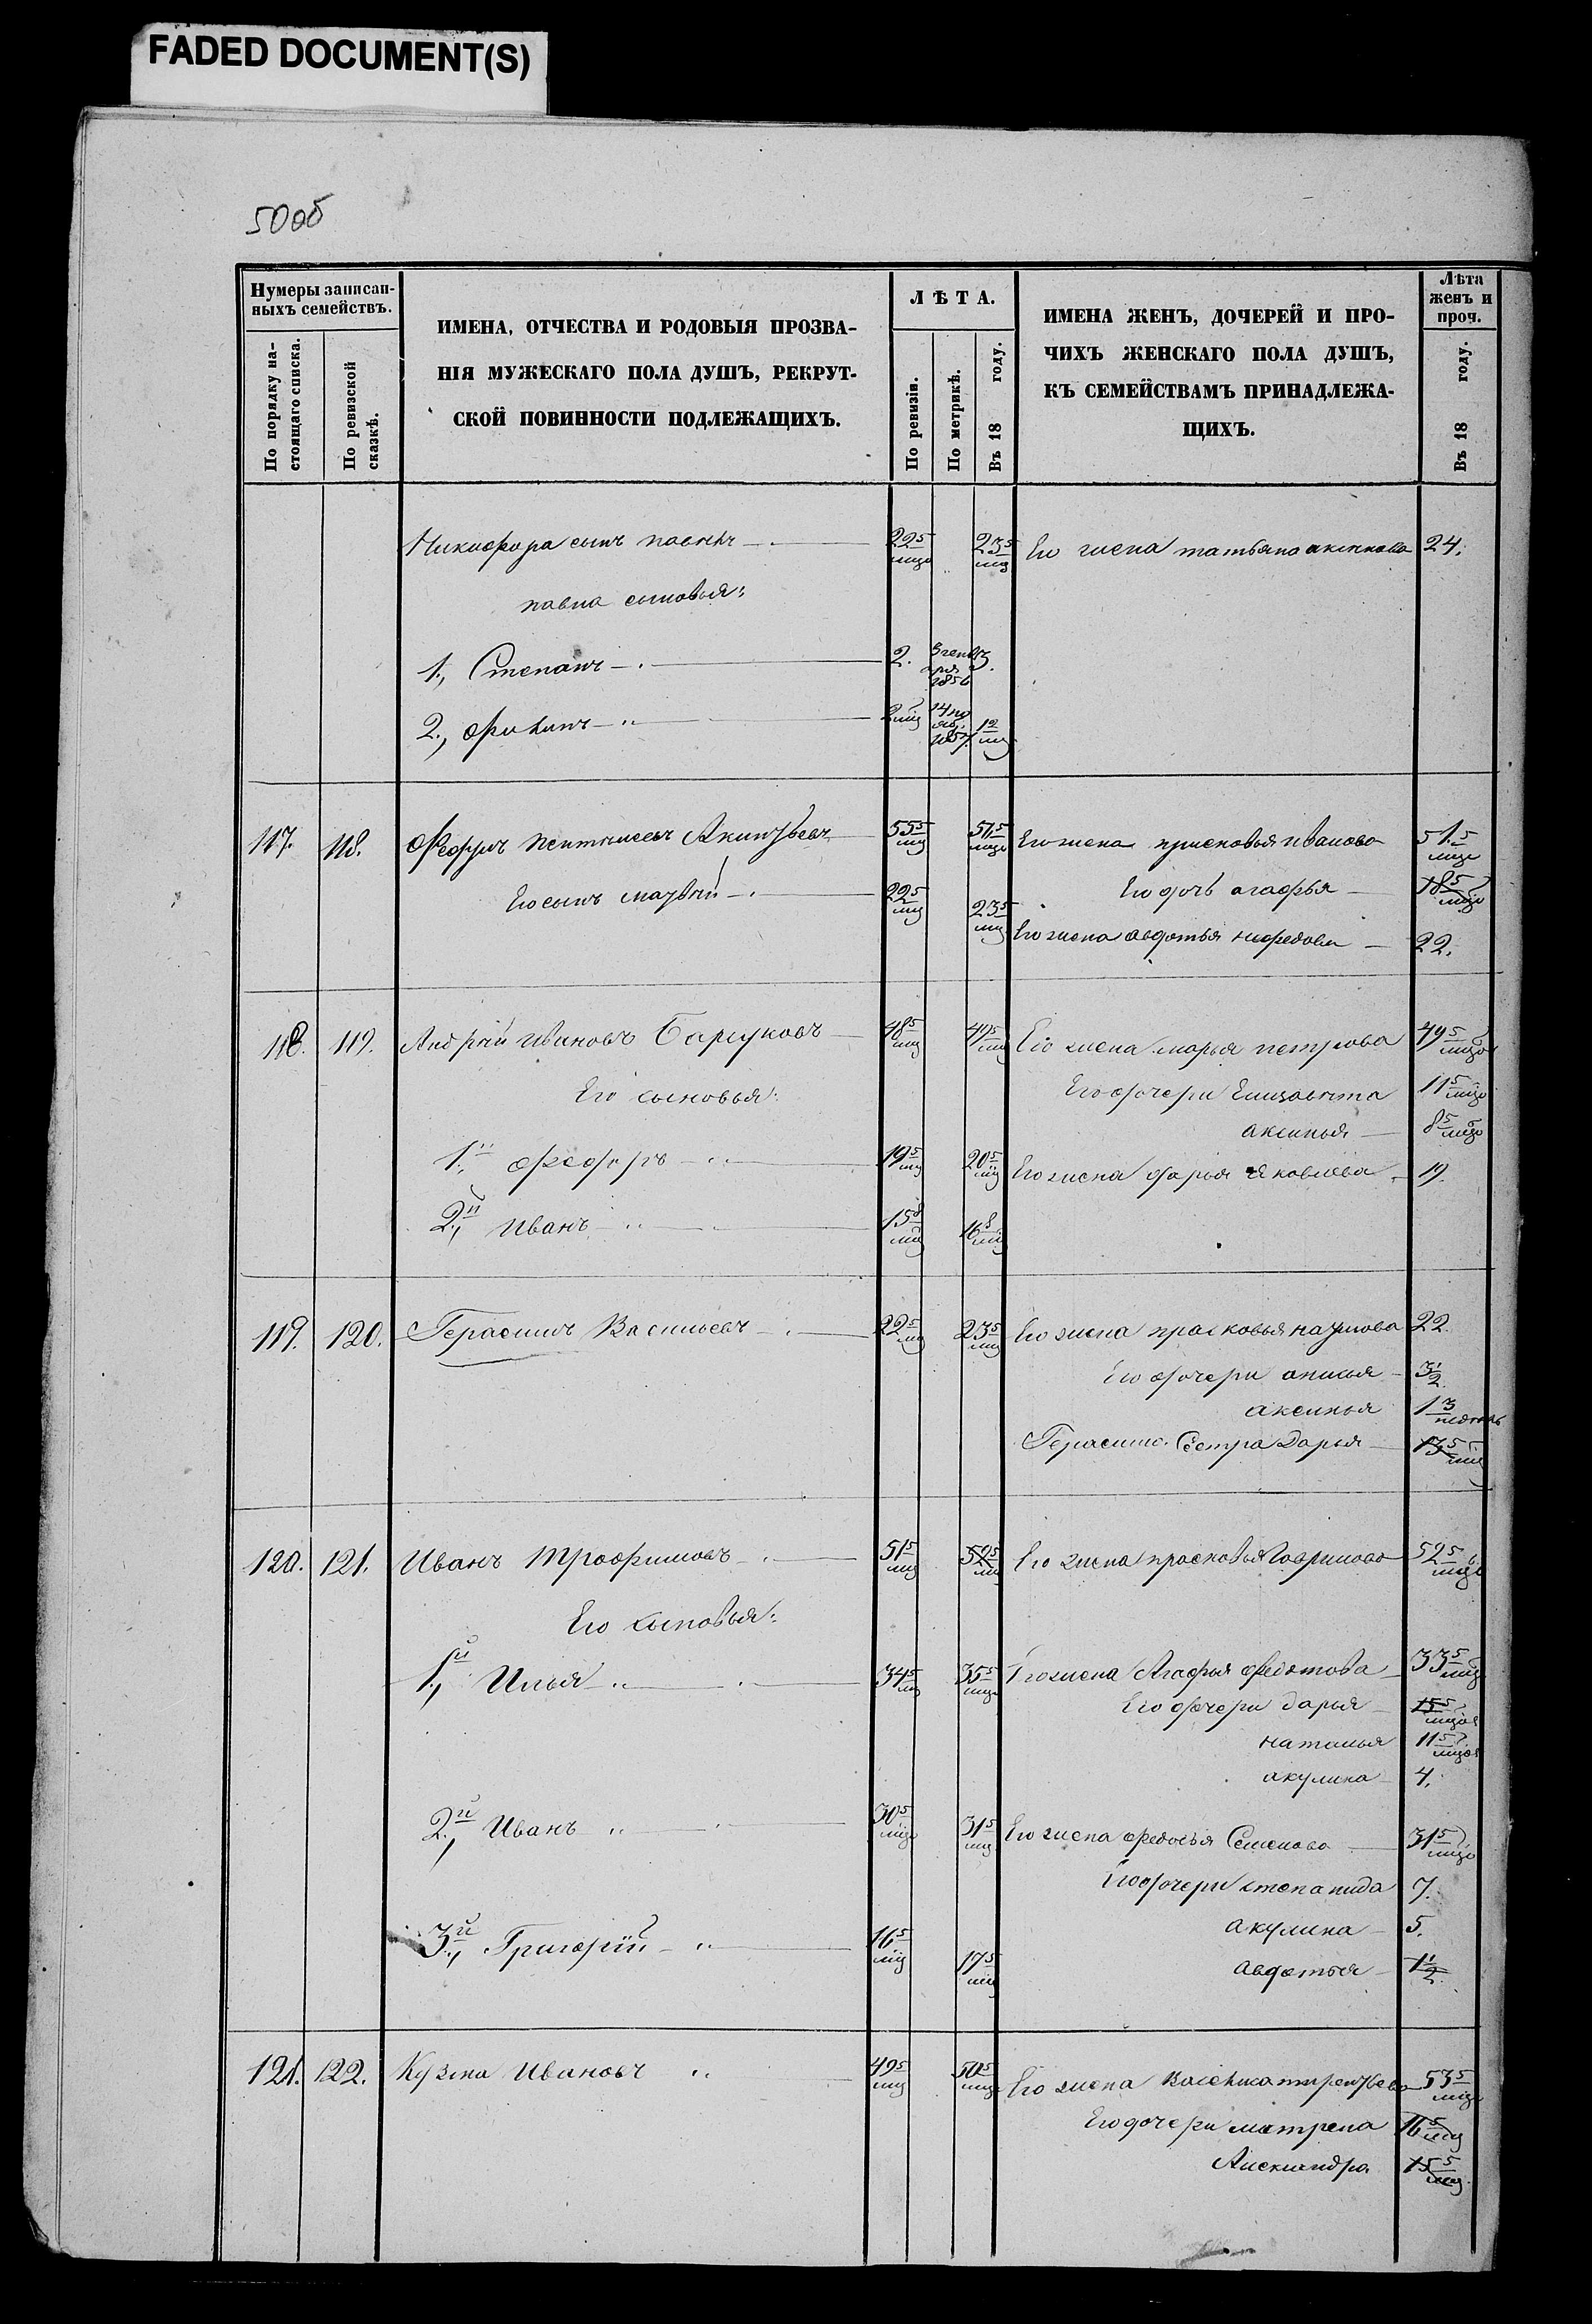 FADED DOCUMENT(S)
50об
Нумеры записан-
ныхъ семействъ.
По порядку на-
стоящаго списка.
По ревизской
сказкѣ.
ИМЕНА, ОТЧЕСТВА И РОДОВЫЯ ПРОЗВА-
НІЯ МУЖЕСКАГО ПОЛА ДУШЪ, РЕКРУТ-
СКОЙ ПОВИННОСТИ ПОДЛЕЖАЩИХЪ.
ЛѢТА.
По ревизіи.
По метрикѣ.
Въ 18 году.
ИМЕНА ЖЕНЪ, ДОЧЕРЕЙ И ПРО-
ЧИХЪ ЖЕНСКАГО ПОЛА ДУШЪ,
КЪ СЕМЕЙСТВАМЪ ПРИНАДЛЕЖА-
ЩИХЪ.
Лѣта
женъ и
проч.
Въ 18 году.
Никифора сынъ павелъ 22 5/мцо 23 5/мц Его жена татьяна 24.
павла сыновья:
1., Степанъ 2. 3.
2., филипъ
117. 118. 55 5/мц Его жена прасковья иванова 51 5/мцо
Его сынъ 22 5/мц 23 5/мц Его дочь агафья 18 5/мцо
Его жена авдотья 22.
118. 119. Андрей ивановъ 48 5/мц 49 5/мц Его жена марья петрова 49 5/мцо
Его сыновья: Его дочери Елизавета 11 5/мцо
аксинья 8 5/мцо
1й., федоръ 19 5/мц 20 5/мц Его жена дарья яковлева 19.
2й., иванъ 15 8/мц 16 8/мц
119. 120. Герасимъ Васильевъ 22 5/мц 23 5/мц Его жена прасковья наумова 22.
Его дочери анисья 3 1/2
аксинья 1
Герасима Сестра Дарья 13 5/мц
120. 121. Иванъ трофимовъ 51 5/мц 52 5/мц Его жена прасковья 52 5/мцо
Его сыновья:
1й., Илья 34 5/мц 35 5/мцо Его жена Агафья федотова 33 5/мцо
Его дочери дарья 15 5/мцов
наталья 11 5/мцов
акулина 4.
2й., Иванъ 30 5/мцо 31 5/мц Его жена федосья Семенова 31 5/мцо
Его дочери степанида 7.
акулина 5.
3й., Григорій 16 5/мц 17 5/мц авдотья 1 1/2
121. 122. Кузма Ивановъ 49 5/мц 50 5/мцо Его жена Василиса 53 5/мцо
Его дочери матрена 16 5/мц
Александра 15 5/мц